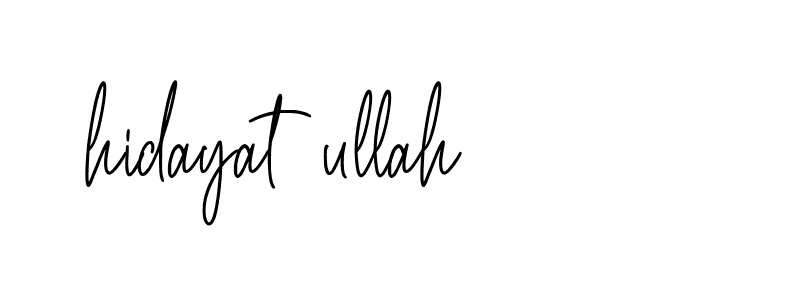 hidayat ullah